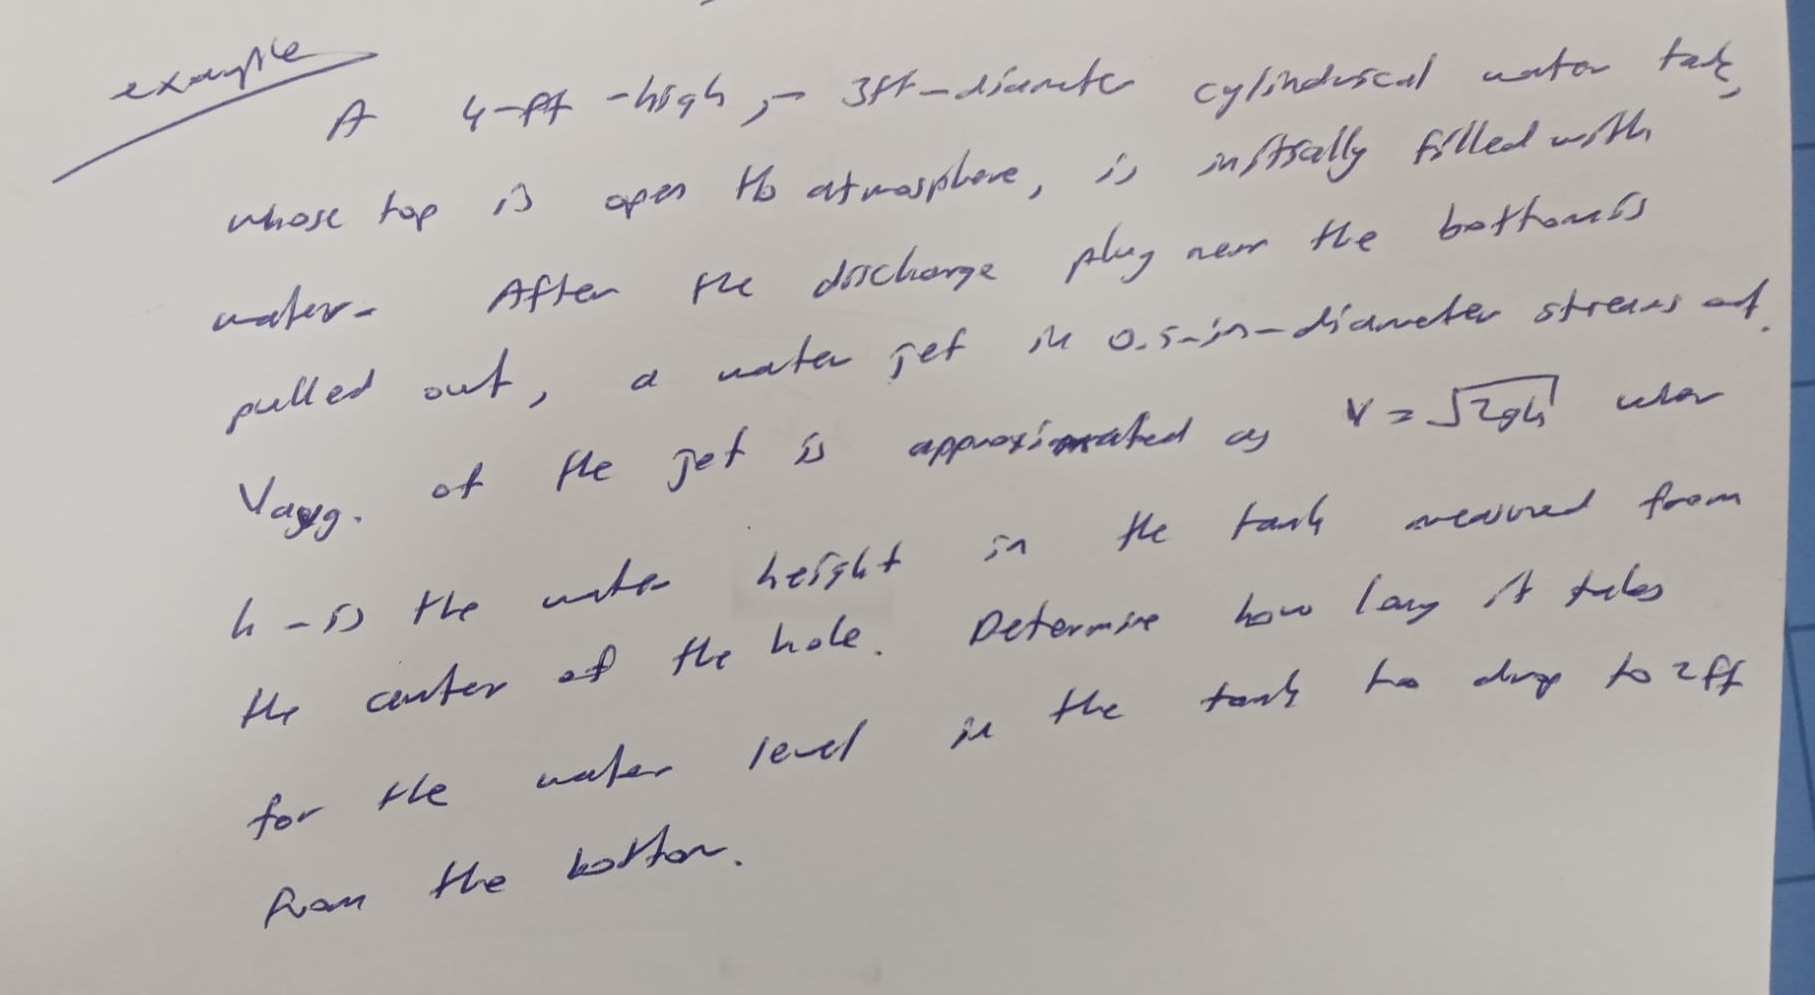 example
A 4-ft-high, - 3ft-diameter cylindrical water tank,
whose top is open to atmosphere, is initially filled with
water. After the discharge plug near the bottom is
pulled out, a water jet in 0.5-in-diameter streams out.
Vavg. of the jet is approximated as V = √2gh when
h - is the water height in the tank measured from
the center of the hole. Determine how long it takes
for the water level in the tank to drop to 2ft
from the bottom.